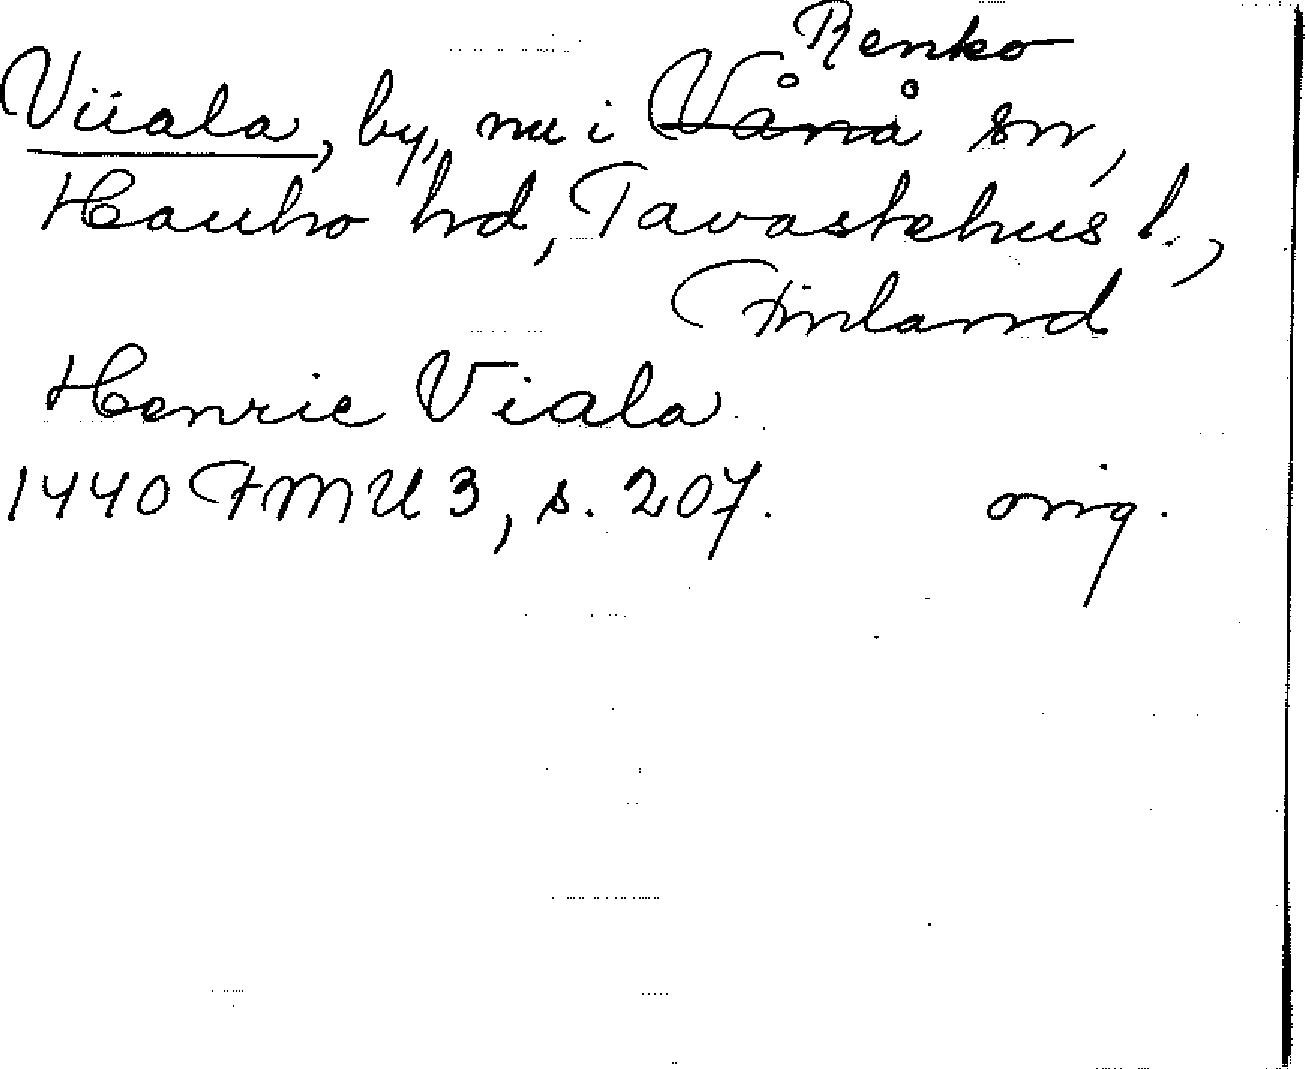 Renko
Viiala, by, nu i Vånå sn,
Hauho hd, Tavastehus l.,
Finland
Henric Viala
1440 FMU 3, s. 207. orig.